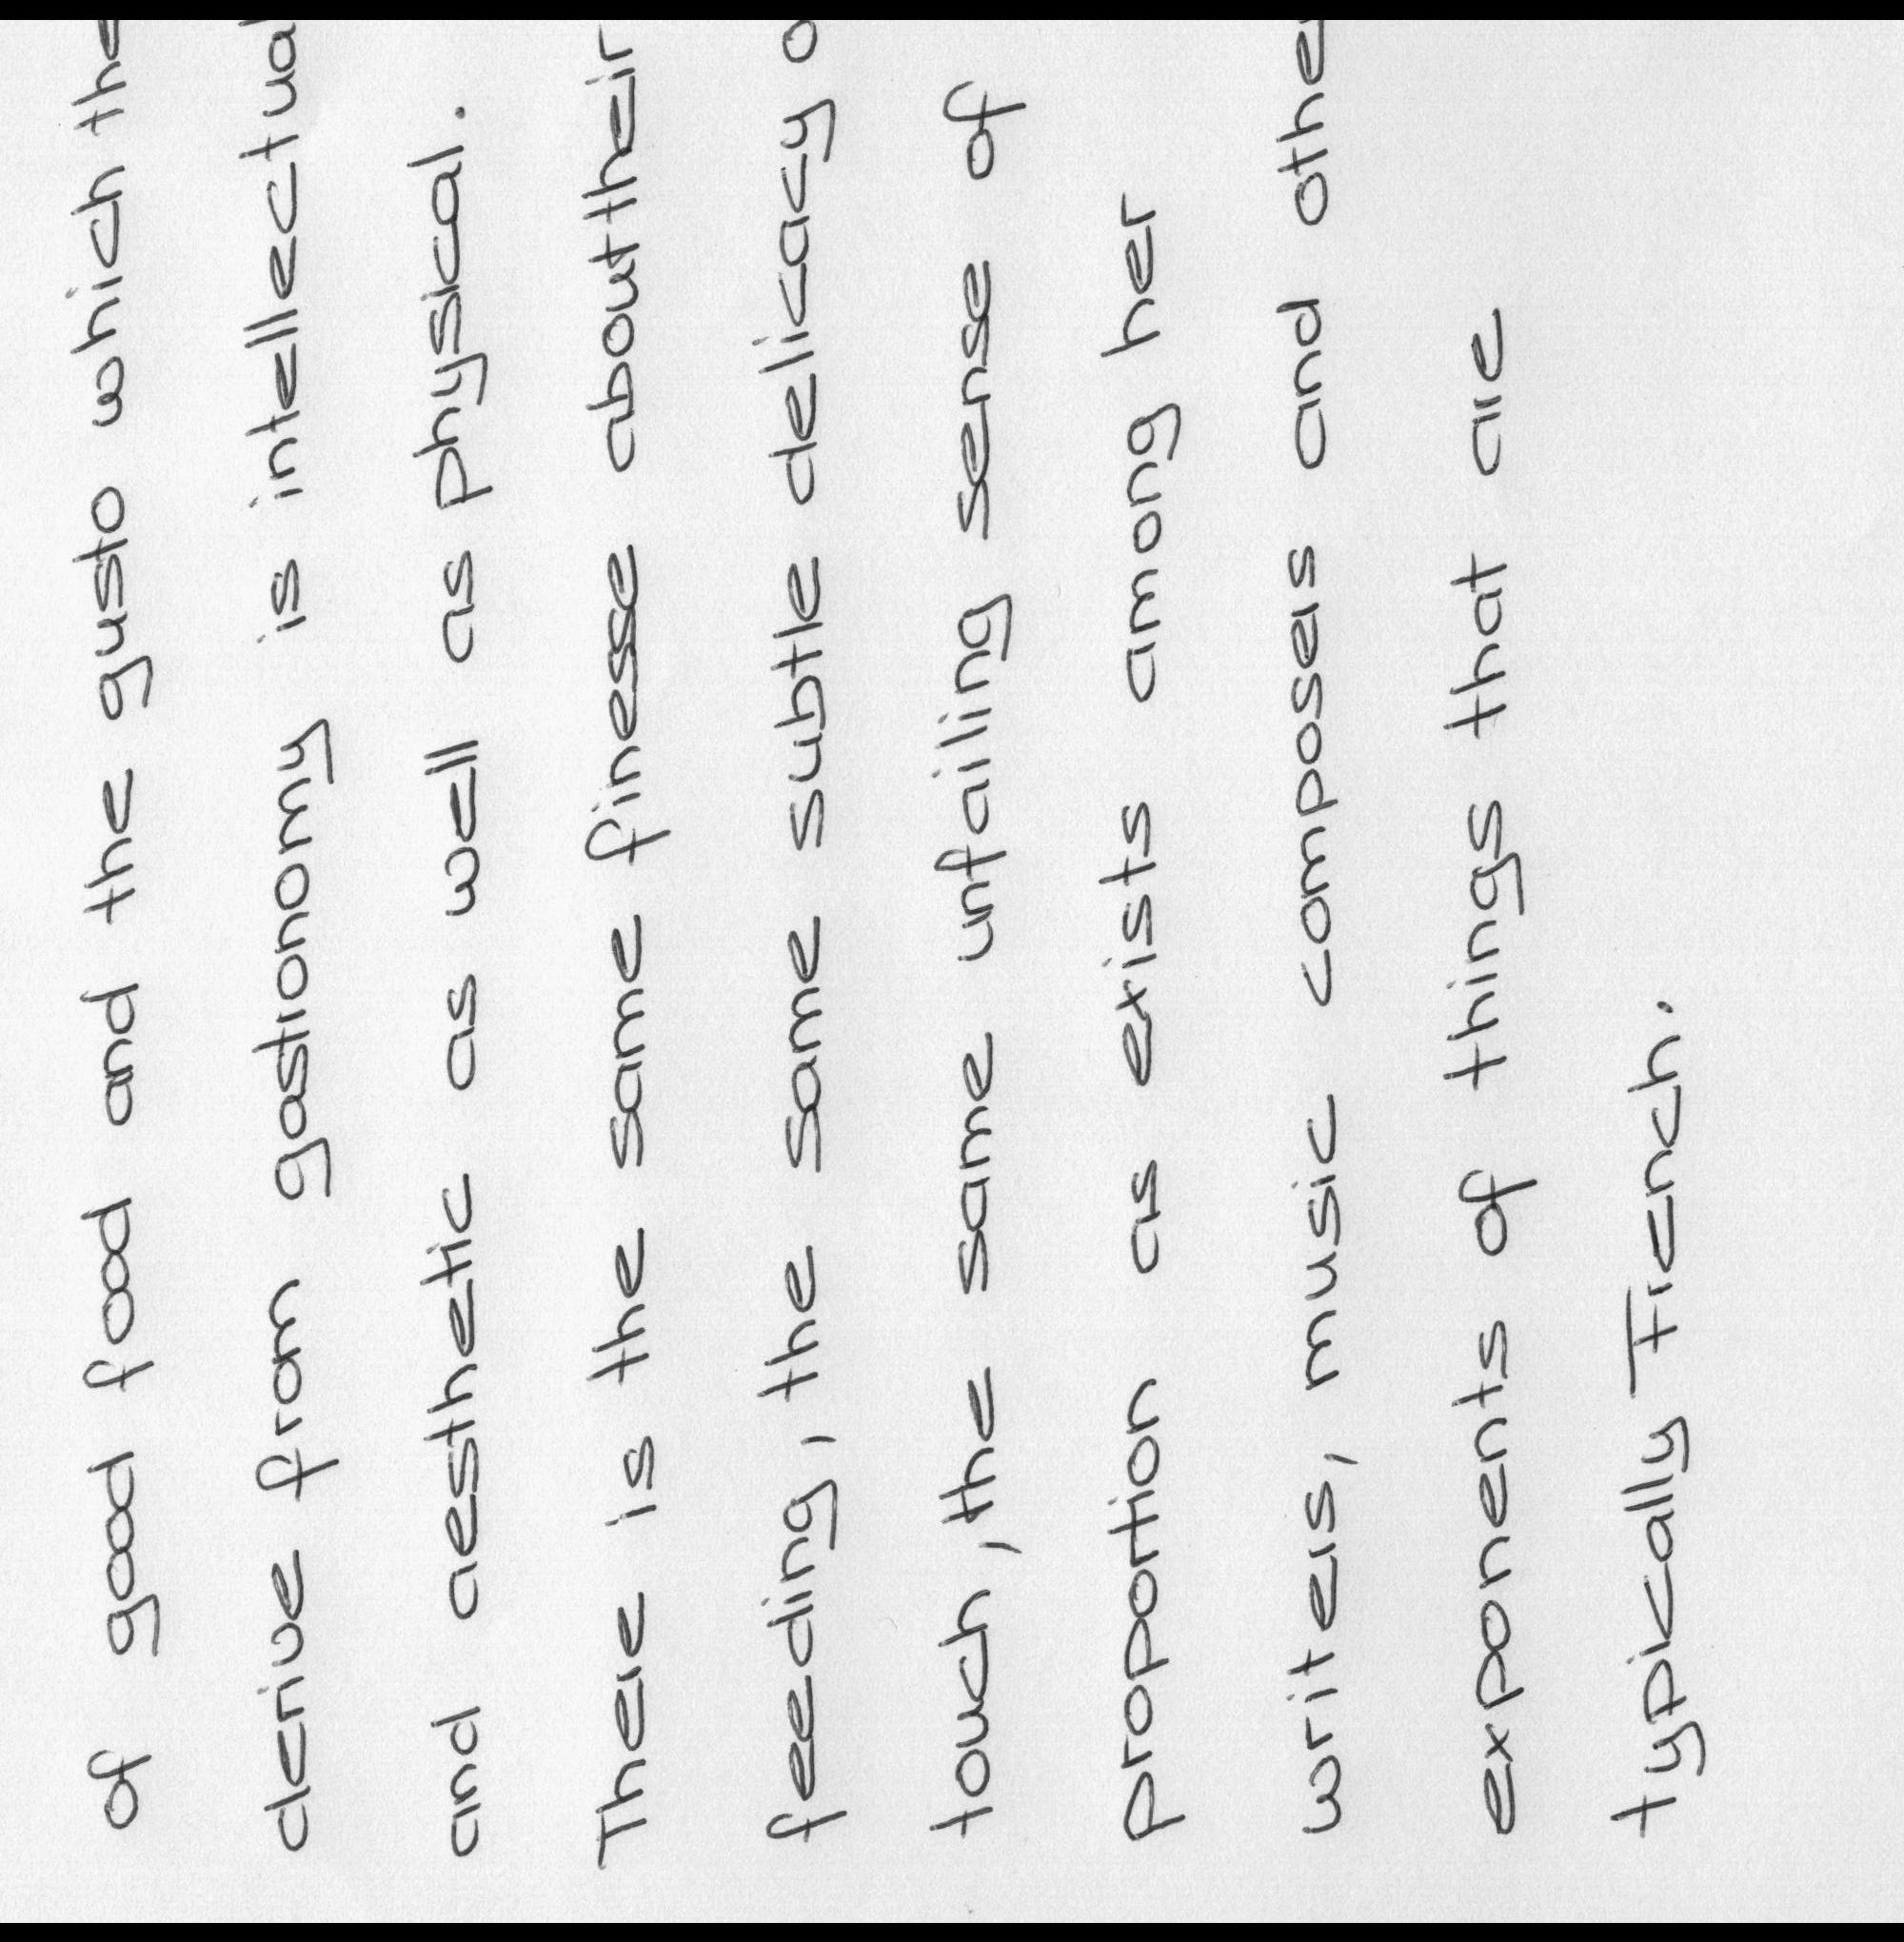 of good food and the gusto which the
derive from gastronomy is intellectual
and aesthetic as well as physical.
There is the same finesse about their
feeding, the same subtle delicacy o
touch, the same unfailing sense of
proportion as exists among her
writers, music composers and othe
exponents of things that are
typically French.